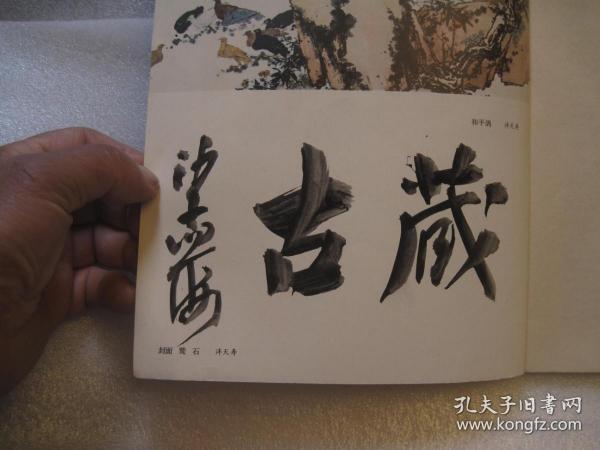 和平鸽 泮天寿
藏古
沙孟海
封面 鹫 石 泮天寿
孔夫子旧书网
www.kongfz.com